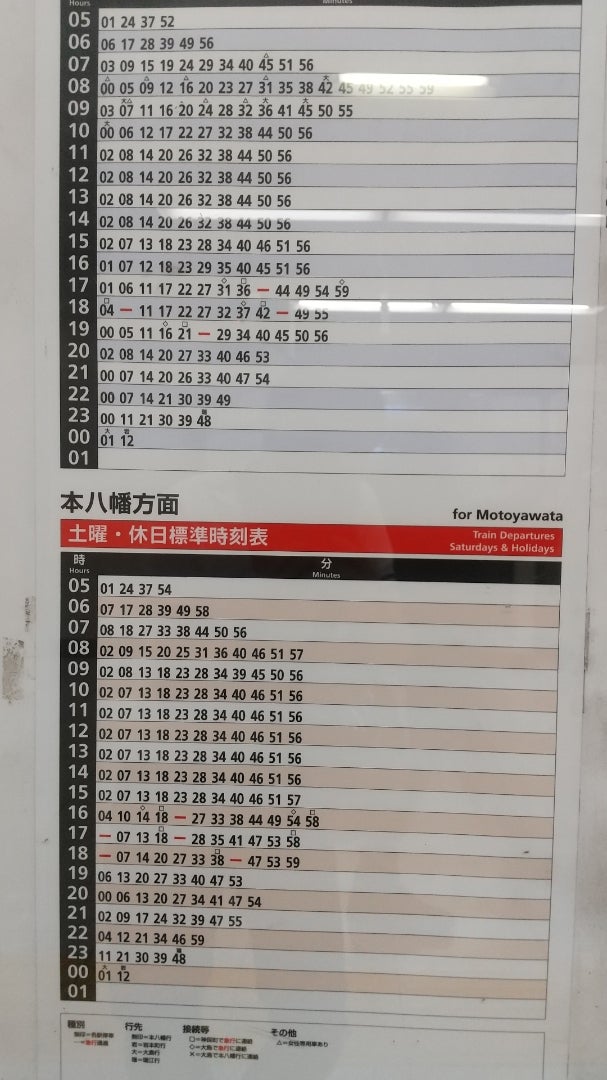 Hours Minutes
05 01 24 37 52
06 06 17 28 39 49 56
07 03 09 15 19 24 29 34 40 45 51 56
08 00 05 09 12 16 20 23 27 31 35 38 42 45 49 52 55 59
09 03 07 11 16 20 24 28 32 36 41 45 50 55
10 00 06 12 17 22 27 32 38 44 50 56
11 02 08 14 20 26 32 38 44 50 56
12 02 08 14 20 26 32 38 44 50 56
13 02 08 14 20 26 32 38 44 50 56
14 02 08 14 20 26 32 38 44 50 56
15 02 07 13 18 23 28 34 40 46 51 56
16 01 07 12 18 23 29 35 40 45 51 56
17 01 06 11 17 22 27 31 36 ー 44 49 54 59
18 04 ー 11 17 22 27 32 37 42 ー 49 55
19 00 05 11 16 21 ー 29 34 40 45 50 56
20 02 08 14 20 27 33 40 46 53
21 00 07 14 20 26 33 40 47 54
22 00 07 14 21 30 39 49
23 00 11 21 30 39 48
00 01 12
01
本八幡方面 for Motoyawata
土曜・休日標準時刻表 Train Departures
Saturdays & Holidays
時 分
Hours Minutes
05 01 24 37 54
06 07 17 28 39 49 58
07 08 18 27 33 38 44 50 56
08 02 09 15 20 25 31 36 40 46 51 57
09 02 08 13 18 23 28 34 39 45 50 56
10 02 07 13 18 23 28 34 40 46 51 56
11 02 07 13 18 23 28 34 40 46 51 56
12 02 07 13 18 23 28 34 40 46 51 56
13 02 07 13 18 23 28 34 40 46 51 56
14 02 07 13 18 23 28 34 40 46 51 56
15 02 07 13 18 23 28 34 40 46 51 57
16 04 10 14 18 ー 27 33 38 44 49 54 58
17 ー 07 13 18 ー 28 35 41 47 53 58
18 ー 07 14 20 27 33 38 ー 47 53 59
19 06 13 20 27 33 40 47 53
20 00 06 13 20 27 34 41 47 54
21 02 09 17 24 32 39 47 55
22 04 12 21 34 46 59
23 11 21 30 39 48
00 01 12
01
種別 行先 接続等 その他
無印=各駅停車 無印=本八幡行 □=神保町で急行に連絡 △=女性専用車あり
ー=急行通過 岩=岩本町行 ◇=大島で急行に連絡
大=大島行 ×=大島で本八幡行に連絡
瑞=瑞江行